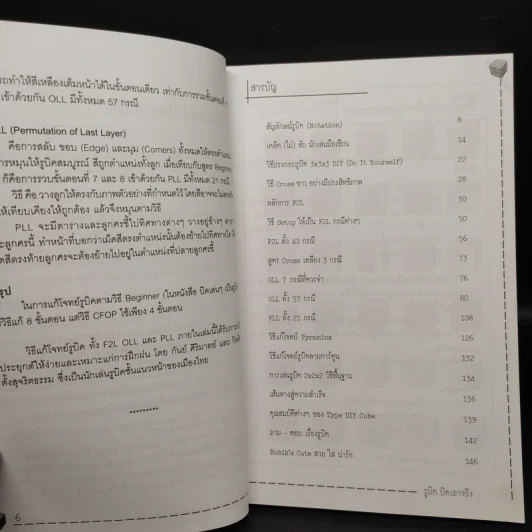 รถทำให้สีเหลืองเต็มหน้าได้ในขั้นตอนเดียว เท่ากับการรวมขั้นตอนที่
เข้าด้วยกัน OLL มีทั้งหมด 57 กรณี
LL (Permutation of Last Layer)
คือการสลับ ขอบ (Edge) และมุม (Corners) ทั้งหมดให้ตรงตำแหน่ง
การหมุนให้รูบิคสมบูรณ์ สีถูกตำแหน่งทั้งลูก เมื่อเทียบกับสูตร Beginner
ก็คือการรวบขั้นตอนที่ 7 และ 8 เข้าด้วยกัน PLL มีทั้งหมด 21 กรณี
วิธี คือ วางลูกให้ตรงกับภาพตัวอย่างที่กำหนดไว้ โดยสีอาจจะไม่
ให้เทียบเคียงให้ถูกต้อง แล้วจึงหมุนตามวิธี
PLL จะมีตารางและลูกศรชี้ไปทิศทางต่างๆ วางอยู่ข้างๆ
ะลูกศรนี้ ทำหน้าที่บอกว่าเม็ดสีตรงตำแหน่งนั้นต้องย้ายไปทิศทางใด
ดสีตรงท้ายลูกศรจะต้องย้ายไปอยู่ในตำแหน่งที่ปลายลูกศรชี้
รุป
ในการแก้โจทย์รูบิคตามวิธี Beginner (ในหนังสือ บิดเล่นๆ
วิธีแก้ 8 ขั้นตอน แต่วิธี CFOP ใช้เพียง 4 ขั้นตอน
วิธีแก้โจทย์รูบิค ทั้ง F2L OLL และ PLL ภายในเล่มนี้ได้รับการ
ประยุกต์ให้ง่ายและเหมาะแก่การฝึกฝน โดย กันย์ ศิริมาตย์ และ
ตั้งสุจริตธรรม ซึ่งเป็นนักเล่นรูบิคชั้นแนวหน้าของเมืองไทย
.........
6
สารบัญ
สัญลักษณ์รูบิค (Notation) 8
เคล็ด (ไม่) ลับ นักเล่นมือเซียน 14
วิธีประกอบรูบิค 3x3x3 DIY (Do It Yourself) 22
วิธี Cross ขาว อย่างมีประสิทธิภาพ 28
หลักการ F2L 30
วิธี Setup ให้เป็น F2L กรณีต่างๆ 50
F2L ทั้ง 41 กรณี 56
สูตร Cross เหลือง 3 กรณี 73
OLL 7 กรณีที่ควรจำ 76
OLL ทั้ง 57 กรณี 80
PLL ทั้ง 21 กรณี 108
วิธีแก้โจทย์ Pyraminx 126
วิธีแก้โจทย์รูบิคลายการ์ตูน 132
การเล่นรูบิค 2x2x2 วิธีพื้นฐาน 134
เส้นทางสู่ความสำเร็จ 136
คุณสมบัติต่างๆ ของ Type DIY Cube 139
ถาม - ตอบ เรื่องรูบิค 142
Rubik's Cute สวย ใส น่ารัก 146
รูบิค บิดเอาจริง